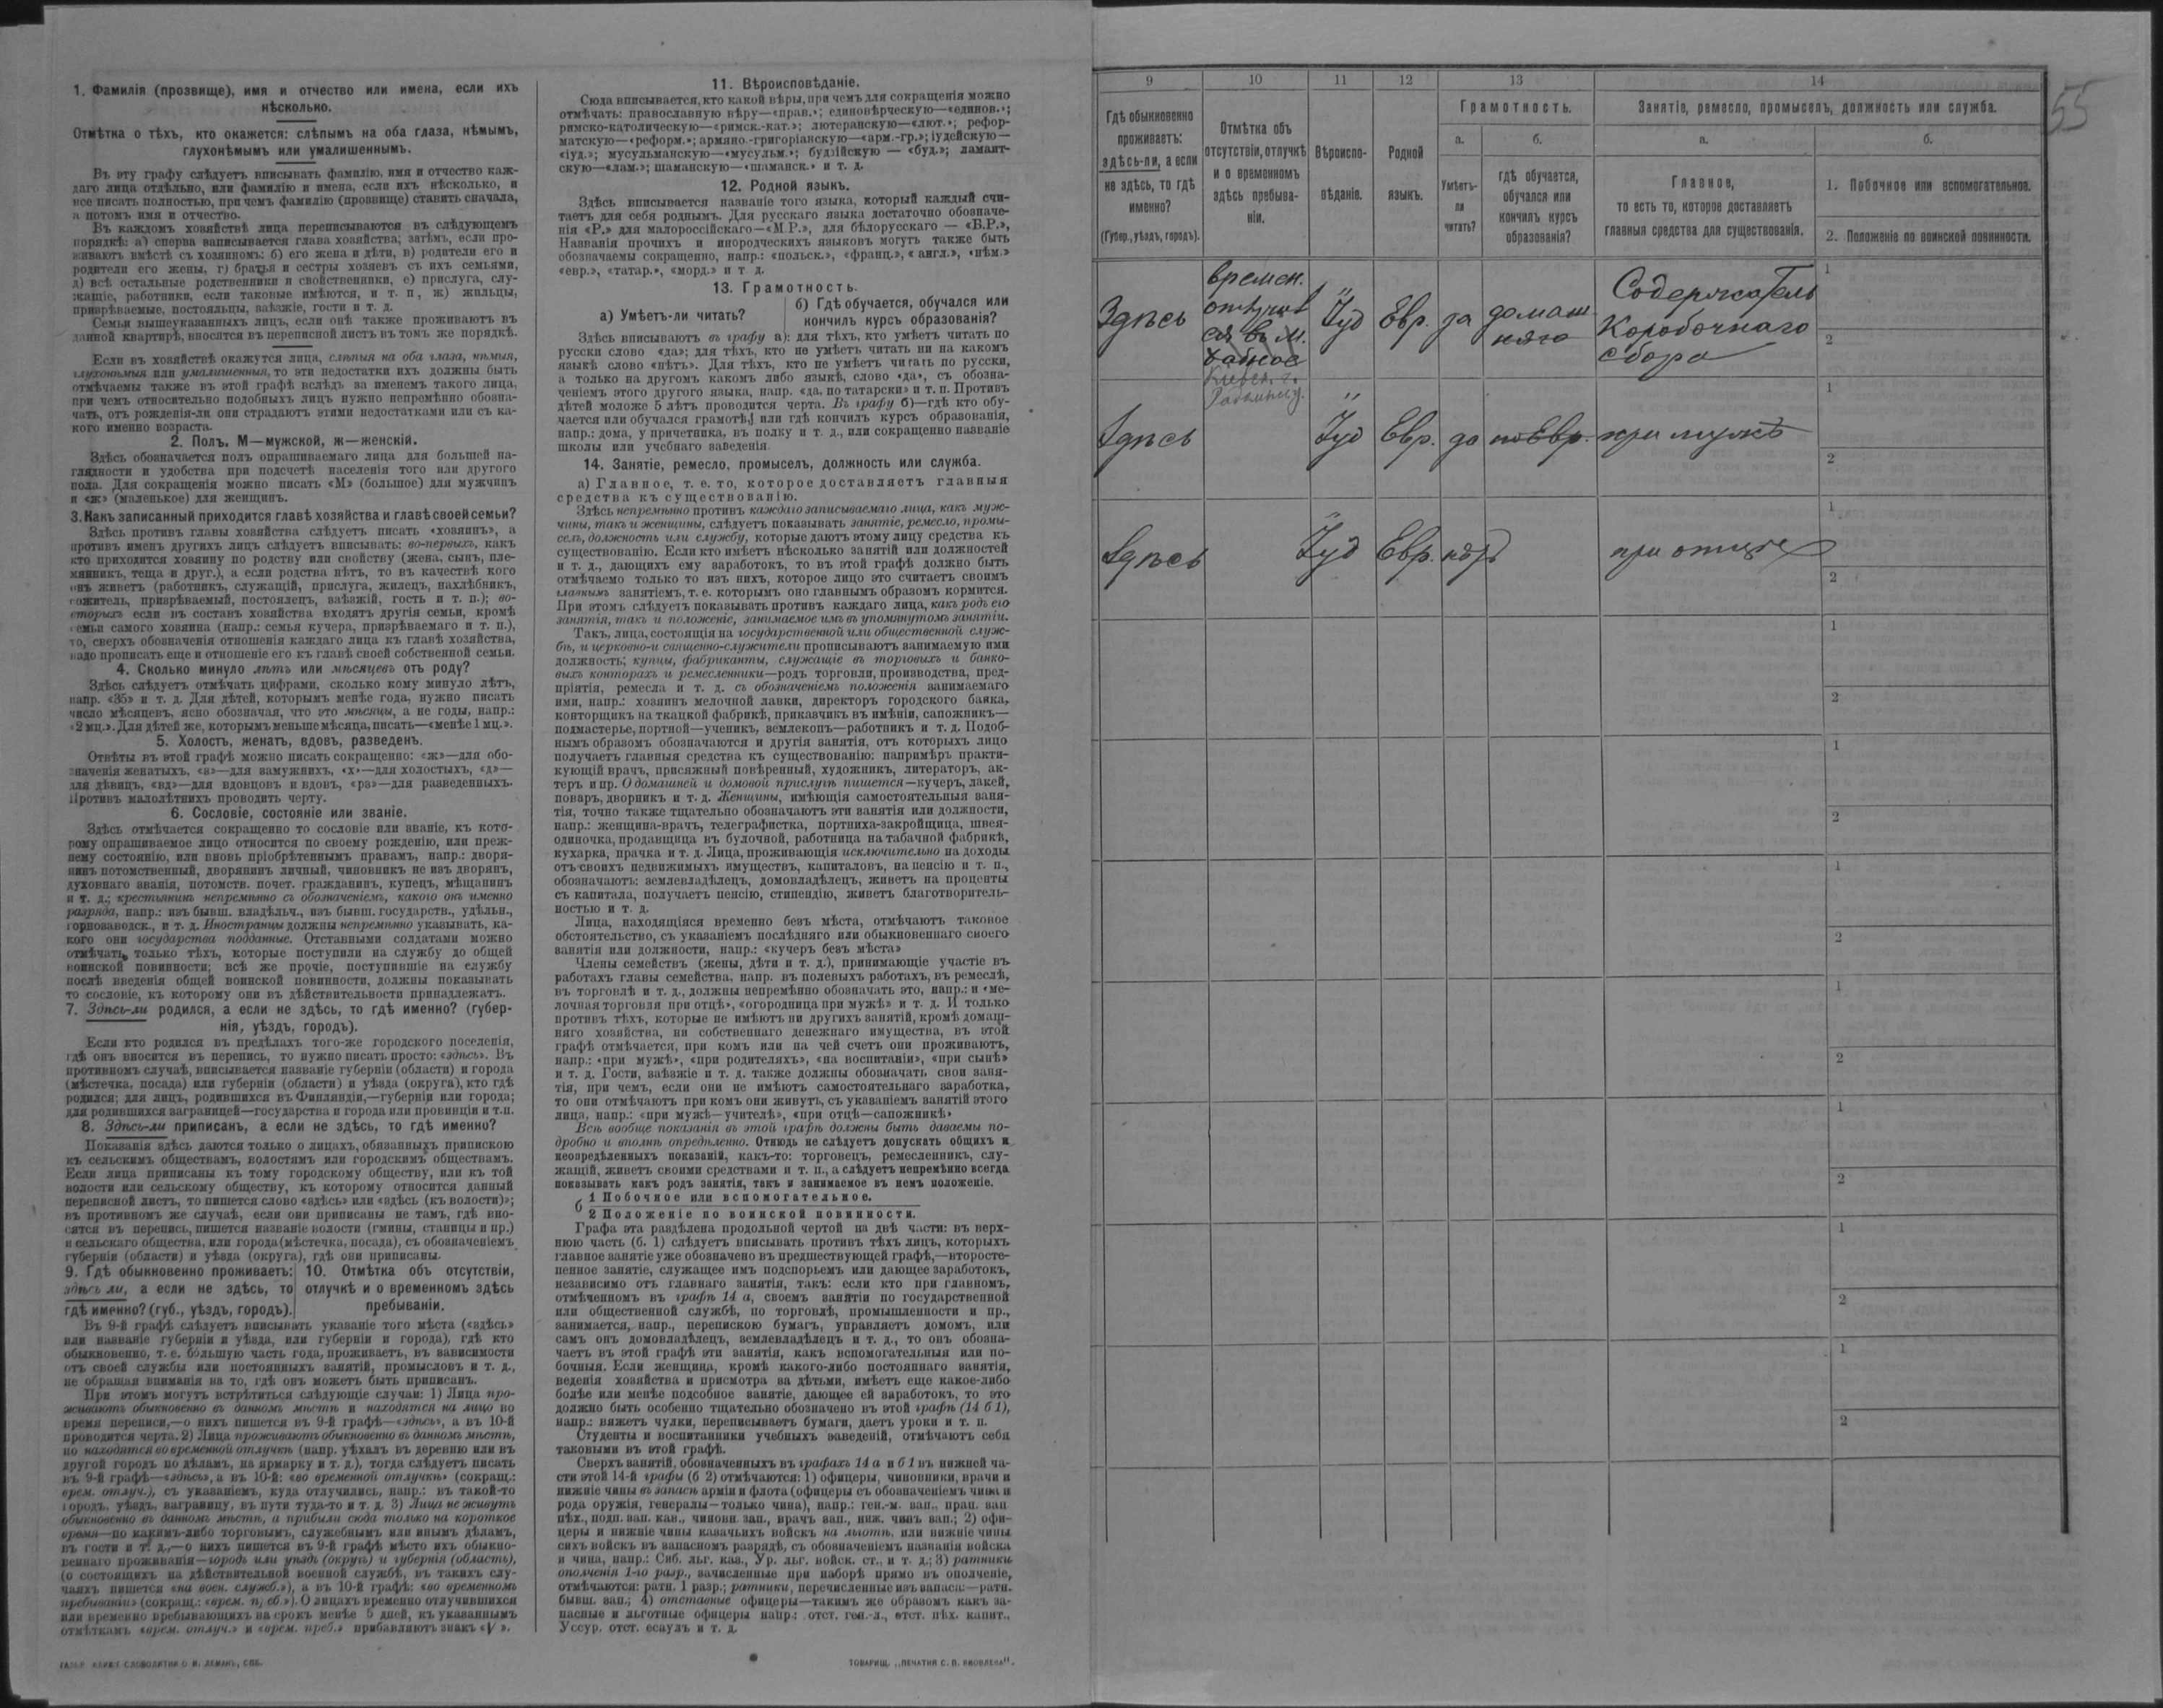 1. Фамилія (прозвище), имя и отчество или имена, если ихъ
нѣсколько.
Отмѣтка о тѣхъ, кто окажется: слѣпымъ на оба глаза, нѣмымъ,
глухонѣмымъ или умалишеннымъ.
Въ эту графу слѣдуетъ вписывать фамилію, имя и отчество каж-
даго лица отдѣльно, или фамилію и имена, если ихъ нѣсколько, и
все писать полностью, при чемъ фамилію (прозвище) ставить сначала,
а потомъ имя и отчество.
Въ каждомъ хозяйствѣ лица переписываются въ слѣдующемъ
порядкѣ: а) сперва записывается глава хозяйства; затѣмъ, если про-
живаютъ вмѣстѣ съ хозяиномъ: б) его жена и дѣти, в) родители его и
родители его жены, г) братья и сестры хозяевъ съ ихъ семьями,
д) всѣ остальные родственники и свойственники, е) прислуга, слу-
жащіе, работники, если таковые имѣются, и т. п., ж) жильцы,
призрѣваемые, постояльцы, заѣзжіе, гости и т. д.
Семьи вышеуказанныхъ лицъ, если онѣ также проживаютъ въ
данной квартирѣ, вносятся въ переписной листъ въ томъ же порядкѣ.
Если въ хозяйствѣ окажутся лица, слѣпыя на оба глаза, нѣмыя,
глухонѣмыя или умалишенныя, то эти недостатки ихъ должны быть
отмѣчаемы также въ этой графѣ вслѣдъ за именемъ такого лица,
при чемъ относительно подобныхъ лицъ нужно непремѣнно обозна-
чать, отъ рожденія-ли они страдаютъ этими недостатками или съ ка-
кого именно возраста.
2. Полъ. М—мужской, ж—женскій.
Здѣсь обозначается полъ опрашиваемаго лица для большей на-
глядности и удобства при подсчетѣ населенія того или другого
пола. Для сокращенія можно писать «М» (большое) для мужчинъ
и «ж» (маленькое) для женщинъ.
3. Какъ записанный приходится главѣ хозяйства и главѣ своей семьи?
Здѣсь противъ главы хозяйства слѣдуетъ писать «хозяинъ», а
противъ именъ другихъ лицъ слѣдуетъ вписывать: во-первыхъ, какъ
кто приходится хозяину по родству или свойству (жена, сынъ, пле-
мянникъ, теща и друг.), а если родства нѣтъ, то въ качествѣ кого
онъ живетъ (работникъ, служащій, прислуга, жилецъ, нахлѣбникъ,
сожитель, призрѣваемый, постоялецъ, заѣзжій, гость и т. п.); во-
вторыхъ если въ составъ хозяйства входятъ другія семьи, кромѣ
семьи самого хозяина (напр.: семья кучера, призрѣваемаго и т. п.),
то, сверхъ обозначенія отношенія каждаго лица къ главѣ хозяйства,
надо прописать еще и отношеніе его къ главѣ своей собственной семьи.
4. Сколько минуло лѣтъ или мѣсяцевъ отъ роду?
Здѣсь слѣдуетъ отмѣчать цифрами, сколько кому минуло лѣтъ,
напр. «35» и т. д. Для дѣтей, которымъ менѣе года, нужно писать
число мѣсяцевъ, ясно обозначая, что это мѣсяцы, а не годы, напр.:
«2 мц.». Для дѣтей же, которымъ меньше мѣсяца, писать—«менѣе 1 мц.».
5. Холостъ, женатъ, вдовъ, разведенъ.
Отвѣты въ этой графѣ можно писать сокращенно: «ж»—для обо-
значенія женатыхъ, «з»—для замужнихъ, «х»—для холостыхъ, «д»—
для дѣвицъ, «вд»—для вдовцовъ и вдовъ, «рз»—для разведенныхъ.
Противъ малолѣтнихъ проводить черту.
6. Сословіе, состояніе или званіе.
Здѣсь отмѣчается сокращенно то сословіе или званіе, къ кото-
рому опрашиваемое лицо относится по своему рожденію, или преж-
нему состоянію, или вновь пріобрѣтеннымъ правамъ, напр.: дворя-
нинъ потомственный, дворянинъ личный, чиновникъ не изъ дворянъ,
духовнаго званія, потомств. почет. гражданинъ, купецъ, мѣщанинъ
и т. д.; крестьянинъ непремѣнно съ обозначеніемъ, какого онъ именно
разряда, напр.: изъ бывш. владѣльч., изъ бывш. государств., удѣльн.,
горнозаводск., и т. д. Иностранцы должны непремѣнно указывать, ка-
кого они государства подданные. Отставными солдатами можно
отмѣчать только тѣхъ, которые поступили на службу до общей
воинской повинности; всѣ же прочіе, поступившіе на службу
послѣ введенія общей воинской повинности, должны показывать
то сословіе, къ которому они въ дѣйствительности принадлежатъ.
7. Здѣсь-ли родился, а если не здѣсь, то гдѣ именно? (губер-
нія, уѣздъ, городъ).
Если кто родился въ предѣлахъ того-же городского поселенія,
гдѣ онъ вносится въ перепись, то нужно писать просто: «здѣсь». Въ
противномъ случаѣ, вписывается названіе губерніи (области) и города
(мѣстечка, посада) или губерніи (области) и уѣзда (округа), кто гдѣ
родился; для лицъ, родившихся въ Финляндіи,—губерніи или города;
для родившихся заграницей—государства и города или провинціи и т.п.
8. Здѣсь-ли приписанъ, а если не здѣсь, то гдѣ именно?
Показанія здѣсь даются только о лицахъ, обязанныхъ припискою
къ сельскимъ обществамъ, волостямъ или городскимъ обществамъ.
Если лица приписаны къ тому городскому обществу, или къ той
волости или сельскому обществу, къ которому относится данный
переписной листъ, то пишется слово «здѣсь» или «здѣсь (къ волости)»;
въ противномъ же случаѣ, если они приписаны не тамъ, гдѣ вно-
сятся въ перепись, пишется названіе волости (гмины, станицы и пр.)
и сельскаго общества, или города (мѣстечка, посада), съ обозначеніемъ
губерніи (области) и уѣзда (округа), гдѣ они приписаны.
9. Гдѣ обыкновенно проживаетъ: здѣсь ли, а если не здѣсь, то гдѣ именно? (губ., уѣздъ, городъ).
10. Отмѣтка объ отсутствіи, отлучкѣ и о временномъ здѣсь пребываніи.
Въ 9-й графѣ слѣдуетъ вписывать указаніе того мѣста («здѣсь»
или названіе губерніи и уѣзда, или губерніи и города), гдѣ кто
обыкновенно, т. е. большую часть года, проживаетъ, въ зависимости
отъ своей службы или постоянныхъ занятій, промысловъ и т. д.,
не обращая вниманія на то, гдѣ онъ можетъ быть приписанъ.
При этомъ могутъ встрѣтиться слѣдующіе случаи: 1) Лица про-
живаютъ обыкновенно въ данномъ мѣстѣ и находятся на лицо во
время переписи,—о нихъ пишется въ 9-й графѣ—«здѣсь», а въ 10-й
проводится черта. 2) Лица проживаютъ обыкновенно въ данномъ мѣстѣ,
но находятся во временной отлучкѣ (напр. уѣхалъ въ деревню или въ
другой городъ по дѣламъ, на ярмарку и т. д.), тогда слѣдуетъ писать
въ 9-й графѣ—«здѣсь», а въ 10-й: «во временной отлучкѣ» (сокращ.:
врем. отлуч.), съ указаніемъ, куда отлучились, напр.: въ такой-то
городъ, уѣздъ, заграницу, въ пути туда-то и т. д. 3) Лица не живутъ
обыкновенно въ данномъ мѣстѣ, а прибыли сюда только на короткое
время—по какимъ-либо торговымъ, служебнымъ или инымъ дѣламъ,
въ гости и т. д.,—о нихъ пишется въ 9-й графѣ мѣсто ихъ обыкно-
веннаго проживанія—городъ или уѣздъ (округъ) и губернія (область),
(о состоящихъ на дѣйствительной военной службѣ, въ такихъ слу-
чаяхъ пишется «на воен. служб.»), а въ 10-й графѣ: «во временномъ
пребываніи» (сокращ.: «врем. преб.»). О лицахъ временно отлучившихся
или временно пребывающихъ на срокъ менѣе 5 дней, къ указаннымъ
отмѣткамъ «врем. отлуч.» и «врем. преб.» прибавляютъ знакъ «V».
11. Вѣроисповѣданіе.
Сюда вписывается, кто какой вѣры, при чемъ для сокращенія можно
отмѣчать: православную вѣру—«прав.»; единовѣрческую—«единов.»;
римско-католическую—«римск.-кат.»; лютеранскую—«лют.»; рефор-
матскую—«реформ.»; армяно-григоріанскую—«арм.-гр.»; іудейскую—
«іуд.»; мусульманскую—«мусульм.»; буддійскую — «буд.»; ламаит-
скую—«лам.»; шаманскую—«шаманск.» и т. д.
12. Родной языкъ.
Здѣсь вписывается названіе того языка, который каждый счи-
таетъ для себя роднымъ. Для русскаго языка достаточно обозначе-
нія «Р.» для малороссійскаго—«М.Р.», для бѣлорусскаго — «Б.Р.»,
Названія прочихъ и инородческихъ языковъ могутъ также быть
обозначаемы сокращенно, напр.: «польск.», «франц.», «англ.», «нѣм.»
«евр.», «татар.», «морд.» и т д.
13. Грамотность.
а) Умѣетъ-ли читать?
б) Гдѣ обучается, обучался или
кончилъ курсъ образованія?
Здѣсь вписываютъ въ графу а): для тѣхъ, кто умѣетъ читать по
русски слово «да»; для тѣхъ, кто не умѣетъ читать ни на какомъ
языкѣ слово «нѣтъ». Для тѣхъ, кто не умѣетъ читать по русски,
а только на другомъ какомъ либо языкѣ, слово «да», съ обозна-
ченіемъ этого другого языка, напр. «да, по татарски» и т. п. Противъ
дѣтей моложе 5 лѣтъ проводится черта. Въ графу б)—гдѣ кто обу-
чается или обучался грамотѣ, или гдѣ кончилъ курсъ образованія,
напр.: дома, у причетника, въ полку и т. д., или сокращенно названіе
школы или учебнаго заведенія.
14. Занятіе, ремесло, промыселъ, должность или служба.
а) Главное, т. е. то, которое доставляетъ главныя
средства къ существованію.
Здѣсь непремѣнно противъ каждаго записываемаго лица, какъ муж-
чины, такъ и женщины, слѣдуетъ показывать занятіе, ремесло, промы-
селъ, должность или службу, которые даютъ этому лицу средства къ
существованію. Если кто имѣетъ нѣсколько занятій или должностей
и т. д., дающихъ ему заработокъ, то въ этой графѣ должно быть
отмѣчаемо только то изъ нихъ, которое лицо это считаетъ своимъ
главнымъ занятіемъ, т. е. которымъ оно главнымъ образомъ кормится.
При этомъ слѣдуетъ показывать противъ каждаго лица, какъ родъ его
занятія, такъ и положеніе, занимаемое имъ въ упомянутомъ занятіи.
Такъ, лица, состоящія на государственной или общественной служ-
бѣ, и церковно-и священно-служители прописываютъ занимаемую ими
должность; купцы, фабриканты, служащіе въ торговыхъ и банко-
выхъ конторахъ и ремесленники—родъ торговли, производства, пред-
пріятія, ремесла и т. д. съ обозначеніемъ положенія занимаемаго
ими, напр.: хозяинъ мелочной лавки, директоръ городского банка,
конторщикъ на ткацкой фабрикѣ, приказчикъ въ имѣніи, сапожникъ—
подмастерье, портной—ученикъ, землекопъ—работникъ и т. д. Подоб-
нымъ образомъ обозначаются и другія занятія, отъ которыхъ лицо
получаетъ главныя средства къ существованію: напримѣръ практи-
кующій врачъ, присяжный повѣренный, художникъ, литераторъ, ак-
теръ и пр. О домашней и домовой прислугѣ пишется—кучеръ, лакей,
поваръ, дворникъ и т. д. Женщины, имѣющія самостоятельныя заня-
тія, точно также тщательно обозначаютъ эти занятія или должности,
напр.: женщина-врачъ, телеграфистка, портниха-закройщица, швея-
одиночка, продавщица въ булочной, работница на табачной фабрикѣ,
кухарка, прачка и т. д. Лица, проживающія исключительно на доходы
отъ своихъ недвижимыхъ имуществъ, капиталовъ, на пенсію и т. п.,
обозначаютъ: землевладѣлецъ, домовладѣлецъ, живетъ на проценты
съ капитала, получаетъ пенсію, стипендію, живетъ благотворитель-
ностью и т. д.
Лица, находящіяся временно безъ мѣста, отмѣчаютъ таковое
обстоятельство, съ указаніемъ послѣдняго или обыкновеннаго своего
занятія или должности, напр.: «кучеръ безъ мѣста»
Члены семействъ (жены, дѣти и т. д.), принимающіе участіе въ
работахъ главы семейства, напр. въ полевыхъ работахъ, въ ремеслѣ,
въ торговлѣ и т. д., должны непремѣнно обозначать это, напр.: и «ме-
лочная торговля при отцѣ», «огородница при мужѣ» и т. д. И только
противъ тѣхъ, которые не имѣютъ ни другихъ занятій, кромѣ домаш-
няго хозяйства, ни собственнаго денежнаго имущества, въ этой
графѣ отмѣчается, при комъ или на чей счетъ они проживаютъ,
напр.: «при мужѣ», «при родителяхъ», «на воспитаніи», «при сынѣ»
и т. д. Гости, заѣзжіе и т. д. также должны обозначать свои заня-
тія, при чемъ, если они не имѣютъ самостоятельнаго заработка,
то они отмѣчаютъ при комъ они живутъ, съ указаніемъ занятій этого
лица, напр.: «при мужѣ—учителѣ», «при отцѣ—сапожникѣ»
Всѣ вообще показанія въ этой графѣ должны быть даваемы по-
дробно и вполнѣ опредѣленно. Отнюдь не слѣдуетъ допускать общихъ и
неопредѣленныхъ показаній, какъ-то: торговецъ, ремесленникъ, слу-
жащій, живетъ своими средствами и т. п., а слѣдуетъ непремѣнно всегда
показывать какъ родъ занятія, такъ и занимаемое въ немъ положеніе.
б
1 Побочное или вспомогательное.
2 Положеніе по воинской повинности.
Графа эта раздѣлена продольной чертой на двѣ части: въ верх-
нюю часть (б. 1) слѣдуетъ вписывать противъ тѣхъ лицъ, которыхъ
главное занятіе уже обозначено въ предшествующей графѣ,—второсте-
пенное занятіе, служащее имъ подспорьемъ или дающее заработокъ,
независимо отъ главнаго занятія, такъ: если кто при главномъ,
отмѣченномъ въ графѣ 14 а, своемъ занятіи по государственной
или общественной службѣ, по торговлѣ, промышленности и пр.,
занимается, напр., перепискою бумагъ, управляетъ домомъ, или
самъ онъ домовладѣлецъ, землевладѣлецъ и т. д., то онъ обозна-
чаетъ въ этой графѣ эти занятія, какъ вспомогательныя или по-
бочныя. Если женщина, кромѣ какого-либо постояннаго занятія,
веденія хозяйства и присмотра за дѣтьми, имѣетъ еще какое-либо
болѣе или менѣе подсобное занятіе, дающее ей заработокъ, то это
должно быть особенно тщательно обозначено въ этой графѣ (14 б 1),
напр.: вяжетъ чулки, переписываетъ бумаги, даетъ уроки и т. п.
Студенты и воспитанники учебныхъ заведеній, отмѣчаютъ себя
таковыми въ этой графѣ.
Сверхъ занятій, обозначенныхъ въ графахъ 14 а и б 1 въ нижней ча-
сти этой 14-й графы (б 2) отмѣчаются: 1) офицеры, чиновники, врачи и
нижніе чины въ запасѣ арміи и флота (офицеры съ обозначеніемъ чина и
рода оружія, генералы—только чина), напр.: ген.-м. зап., прап. зап.
пѣх., подп. зап. кав., чиновн. зап., врачъ зап., ниж. чинъ зап.; 2) офи-
церы и нижніе чины казачьихъ войскъ на льготѣ, или нижніе чины
сихъ войскъ въ запасномъ разрядѣ, съ обозначеніемъ названія войска
и чина, напр.: Сиб. льг. каз., Ур. льг. войск. ст., и т. д.; 3) ратники
ополченія 1-го разр., зачисленные при наборѣ прямо въ ополченіе,
отмѣчаются: ратн. 1 разр.; ратники, перечисленные изъ запаса:—ратн.
бывш. зап.; 4) отставные офицеры—такимъ же образомъ какъ за-
пасные и льготные офицеры напр.: отст. ген.-л., отст. пѣх. капит.,
Уссур. отст. есаулъ и т. д.
ТОВАРИЩ. „ПЕЧАТНЯ С. П. ЯКОВЛЕВА“.
55
9 10 11 12 13 14
Гдѣ обыкновенно
проживаетъ:
здѣсь-ли, а если
не здѣсь, то гдѣ
именно?
(Губер., уѣздъ, городъ).
Отмѣтка объ
отсутствіи, отлучкѣ
и о временномъ
здѣсь пребыва-
ніи.
Вѣроиспо-
вѣданіе.
Родной
языкъ.
Грамотность.
а.
Умѣетъ-
ли
читать?
б.
гдѣ обучается,
обучался или
кончилъ курсъ
образованія?
Занятіе, ремесло, промыселъ, должность или служба.
а.
Главное,
то есть то, которое доставляетъ
главныя средства для существованія.
б.
1. Побочное или вспомогательное.
2. Положеніе по воинской повинности.
Здѣсь
времен.
въ м.
Хабное
Кіевск. г.
Іуд
Евр.
да
домаш
няго
Содержатель
Коробочнаго
сбора
1
2
Здѣсь
Іуд
Евр.
да
по Евр.
при мужѣ
1
2
Здѣсь
Іуд
Евр.
нѣтъ
при отцѣ
1
2
1
2
1
2
1
2
1
2
1
2
1
2
1
2